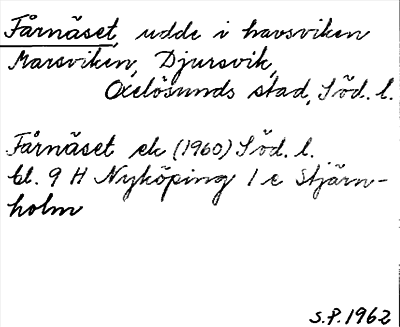 Fårnäset, udde i havsviken
Marsviken, Djursvik,
Oxelösunds stad, Söd. l.
Fårnäset ek (1960) Söd. l.
bl. 9 H Nyköping 1 e Stjärn-
holm
S.P. 1962